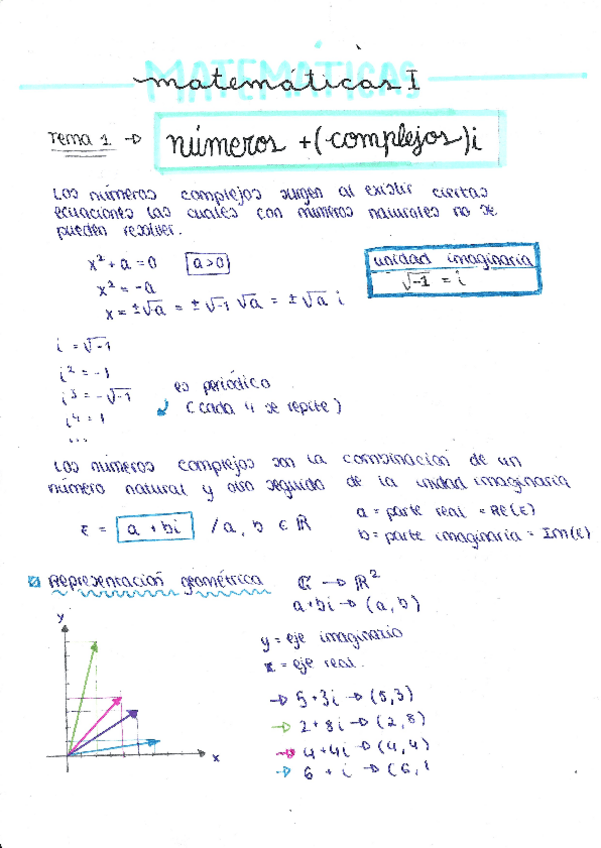 MATEMÁTICAS
matemáticas I
Tema 1 → números + (complejos)i
Los números complejos surgen al existir ciertas
ecuaciones las cuales con números naturales no se
pueden resolver.
x² + a = 0 a>0
x² = -a
x = ±√a = ±√-1 √a = ±√a i
unidad imaginaria
√-1 = i
i = √-1
i² = -1
i³ = -√-1
i⁴ = 1
...
es periódico
(cada 4 se repite)
Los números complejos son la combinación de un
número natural y otro seguido de la unidad imaginaria
ε = a + bi / a, b ∈ ℝ
a = parte real = Re(ε)
b = parte imaginaria = Im(ε)
Representación geométrica
ℂ → ℝ²
a+bi → (a, b)
y = eje imaginario
x = eje real.
→ 5+3i → (5,3)
→ 2+8i → (2,8)
→ 4+4i → (4,4)
→ 6 + i → (6,1
y
x